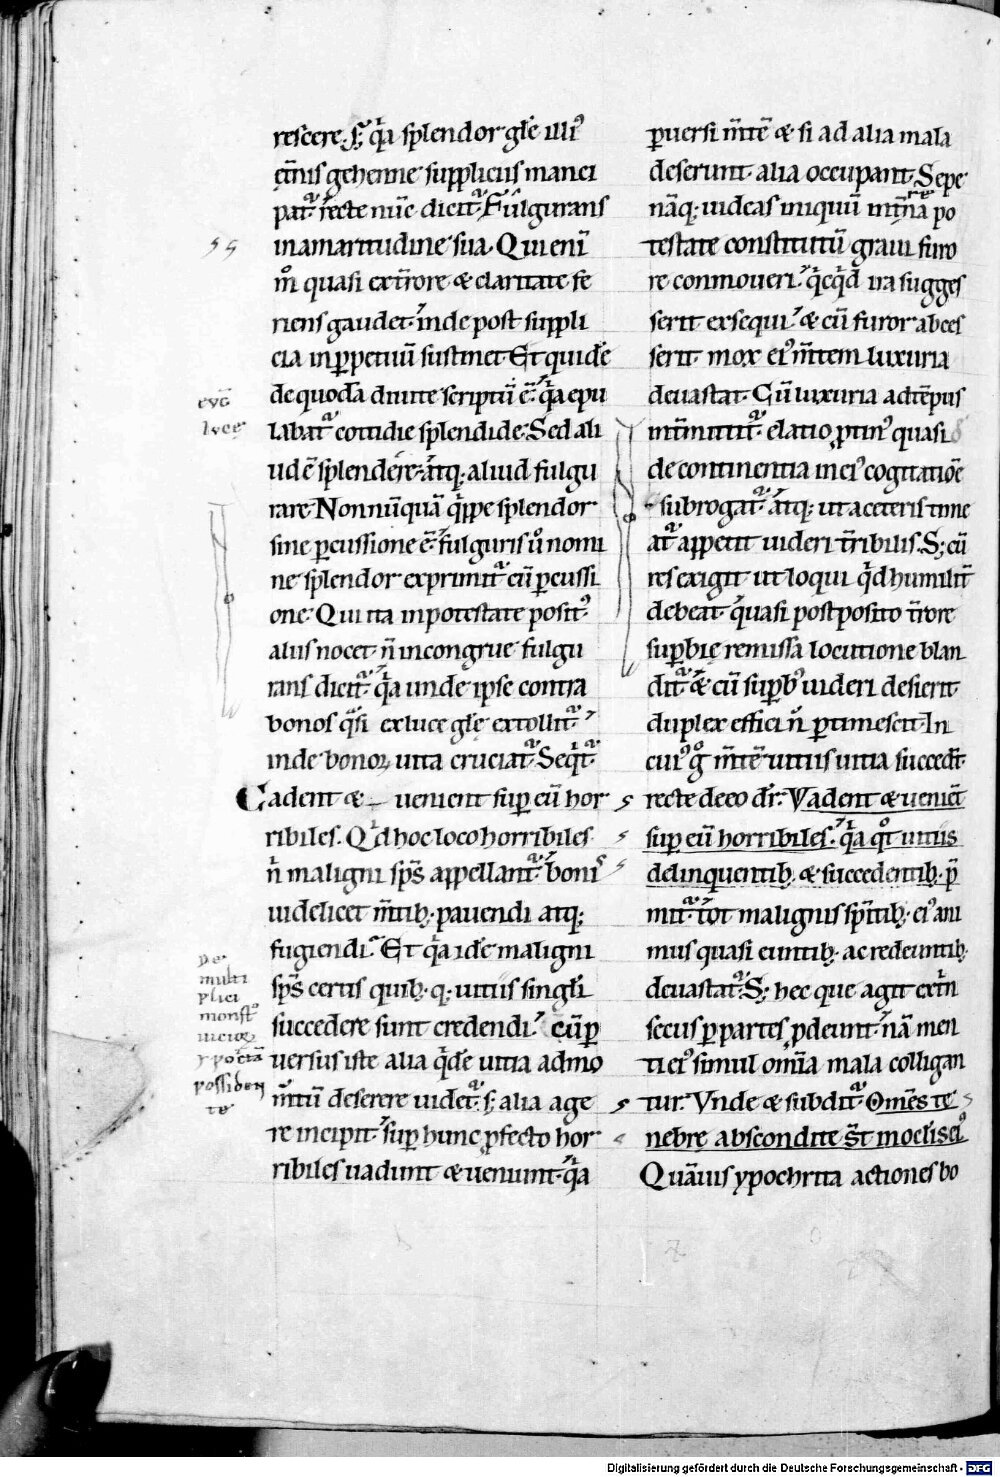 rescere. s; qͥa splendor gl̄e illi᾽
et̄nis gehenne suppliciis manci
patᷓ. recte nūc dicitᷓ. Fulgurans
in amaritudine sua. Qui eni᷒
m̊ quasi ex t̄rore & claritate fe
riens gaudet. inde post suppli
cia in ꝑpetuū sustinet. Et quidē
de quodā diuite scriptū ē. qͥa epu
labatᷓ cottidie splendide. Sed ali
ud ē splendere. atq; aliud fulgu
rare. Nonnūquā qͥppe splendor
sine ꝑcussione ē. fulguris ů nomi
ne splendor exprimitᷓ cū ꝑcussi
one. Qui ita in potestate posit᾽
aliis nocet. n̄ incongrue fulgu
rans dicitᷓ. qͥa unde ipse contra
bonos qͣsi ex luce gl̄e extollitᷓ.
inde bonoꝝ uita cruciatᷓ. Seqͥtᷓ.
Uadent & uenient sup eū hor
ribiles. Qͥd hoc loco horribiles
n̄ maligni sp̄s appellantᷓ. bonis
uidelicet m̄tib; pauendi atq;
fugiendi. Et qͥa idē maligni
sp̄s certis quib; q; uitiis singl̄i
succedere sunt credendi. cū ꝑ
uersus iste alia qͥdē uitia ad mo
m̄tū deserere uidetᷓ. s; alia age
re incipit. sup hunc ꝓfecto hor
ribiles uadunt & ueniunt. qͥa
ꝑuersi m̄tē & si ad alia mala
deserunt. alia occupant. Sepe
nāq; uideas iniquū in t̄rena po
testate constitutū graui furo
re conmoueri. qͥcqͥd ira sugges
serit exsequi. & cū furor abces
serit. mox ei᾽ m̄tem luxuria
deuastat. Cū luxuria ad tēpus
int̄mittitᷓ. elatio ꝓtin᾽ quasi
de continentia in ei᾽ cogitatiōe
subrogatᷓ. atq; ut a ceteris time
atᷓ appetit uideri t̄ribilis. S; cū
res exigit ut loqui qͥd humilit̄
debeat. quasi postposito t̄rore
suꝑbię remissa locutione blan
ditᷓ. & cū suꝑb᾽ uideri desierit
duplex effici n̄ ꝑtimescit. In
cui᾽ g̊ m̄te uitiis uitia succedt̄.
recte de eo dr̄. Vadent & ueniēt
sup eū horribiles. qͥa qͦt uitiis
delinquentib; & succedentib; p̄
mitᷓ. tot malignis sp̄itib; ei᾽ ani
mus quasi euntib; ac redeuntib;
deuastatᷓ. S; hec que agit ext̄n
secus ꝑ partes ꝓdeunt. nā men
ti ei᾽ simul om̄ia mala colligan
tur. Vnde & subditᷓ. Om̄es te
nebrę abscondite s̄t in oc̄lis ei᾽.
Quāuis ypochrita actiones bo
euḡ
luce
De
multi
plici
monst᾽
uicioꝝ
ypoc̄ta
possiden
te
Digitalisierung gefördert durch die Deutsche Forschungsgemeinschaft - DFG